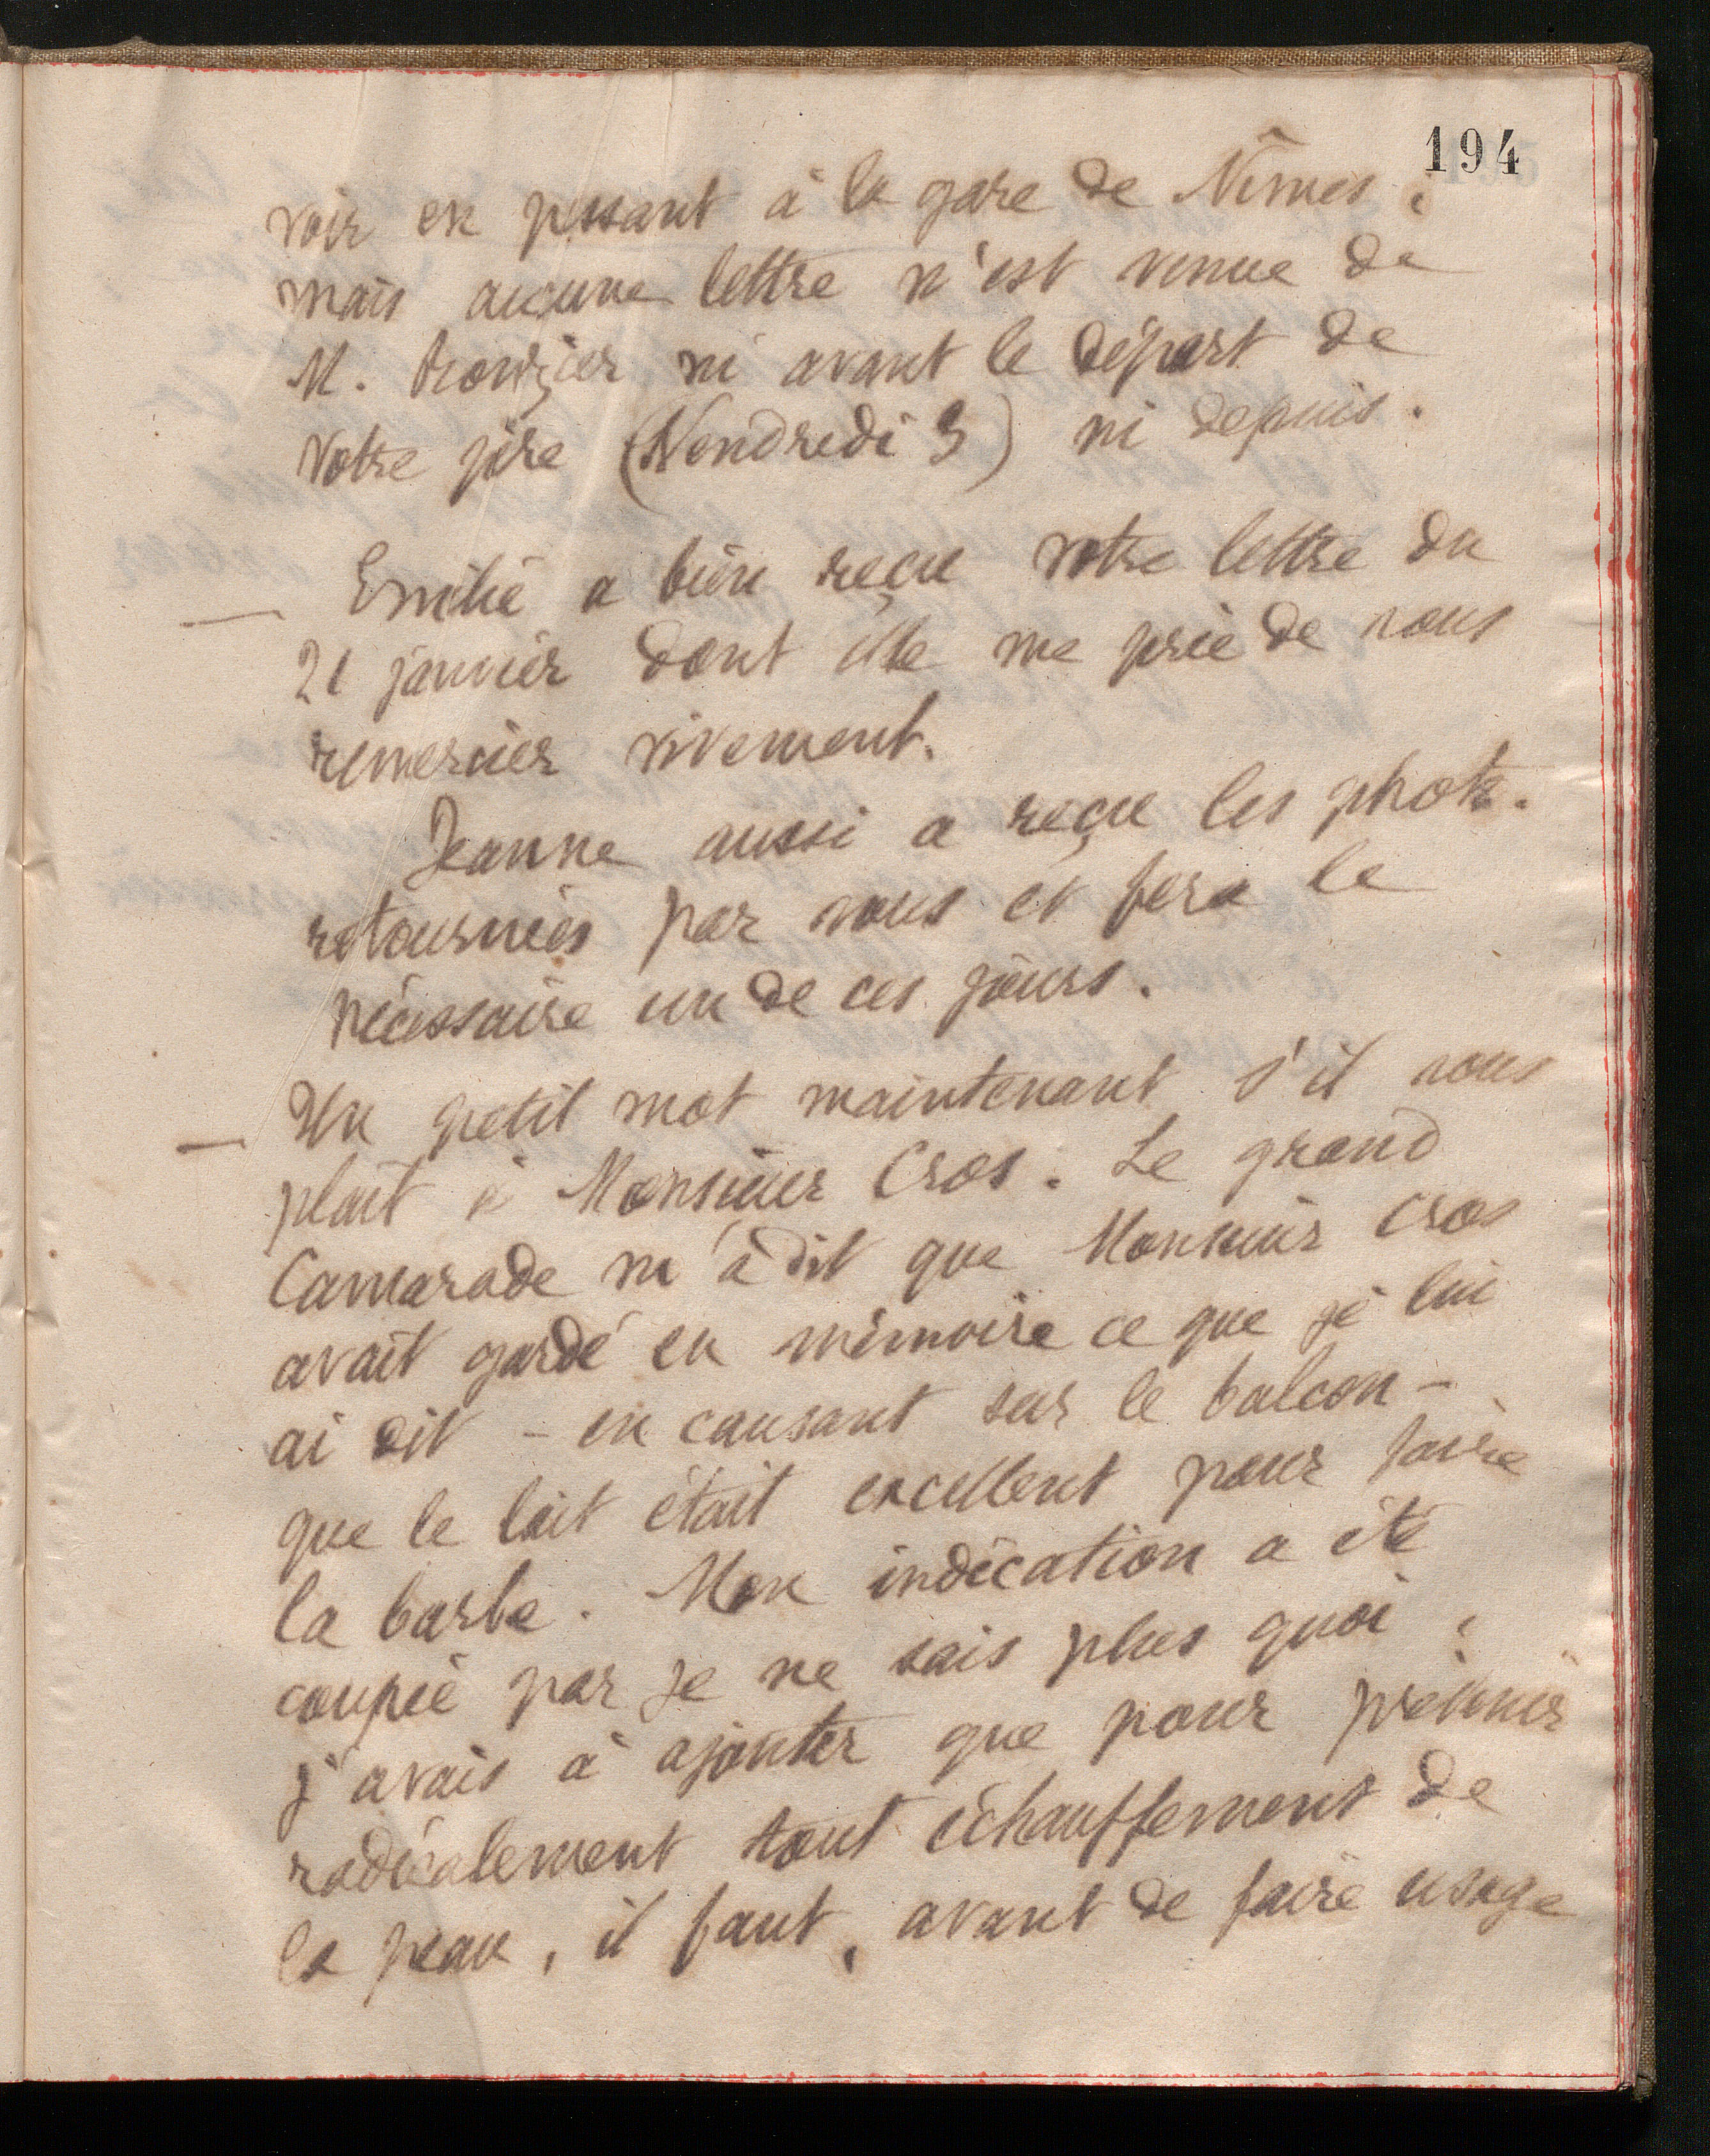 194
voir en passant à la gare de Nîmes ;
mais aucune lettre n'est venue de
M. ni avant le départ de
votre père (Vendredi 3) ni depuis.
— Emilie a bien reçu votre lettre du
21 janvier dont elle me prie de vous
remercier vivement.
Jeanne aussi a reçu les phot.
retournées par vous et fera le
nécessaire un de ces jours.
— Un petit mot maintenant s'il vous
plait à Monsieur Cros. Le grand
Camarade m'a dit que Monsieur Cros
avait gardé en mémoire ce que je lui
ai dit - en causant sur le balcon -
que le lait était excellent pour faire
la barbe. Mon indication a été
coupée par je ne sais plus quoi ;
j'avais à ajouter que pour prévenir
radicalement tout échauffement de
la peau, il faut, avant de faire usage